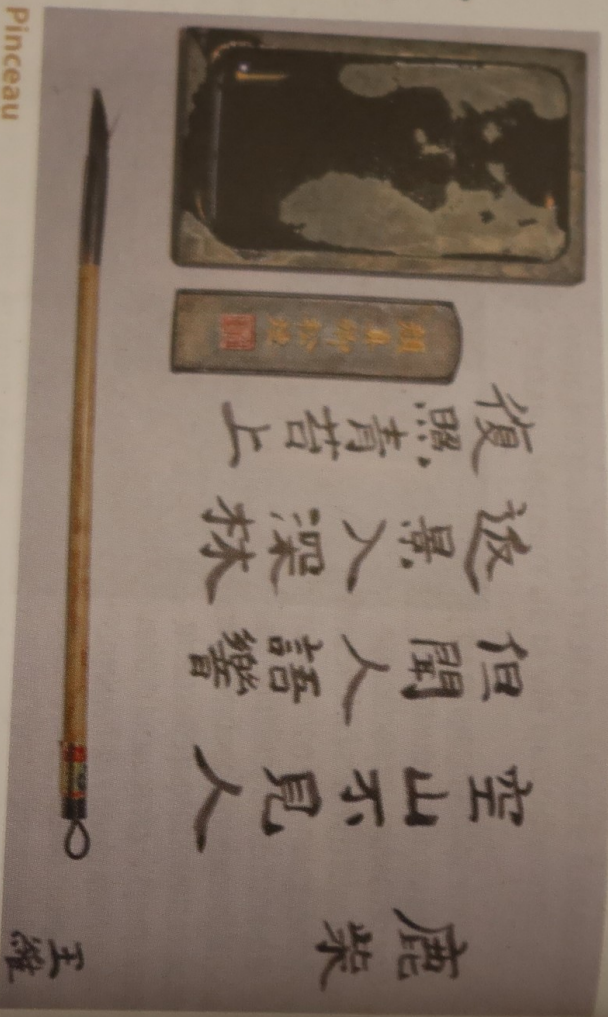 鹿柴
王維
空山不見人
但聞人語響
返景入深林
復照青苔上
Pinceau